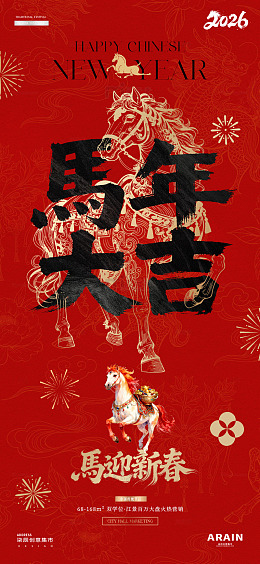 2026
HAPPY CHINESE
NEW YEAR
馬年
大吉
馬迎新春
68-168m² 双学位·江景百万大盘火热营销
CITY HALL MARKETING
ADDRESS
柒厘创意集市
DESIGN
ARAIN